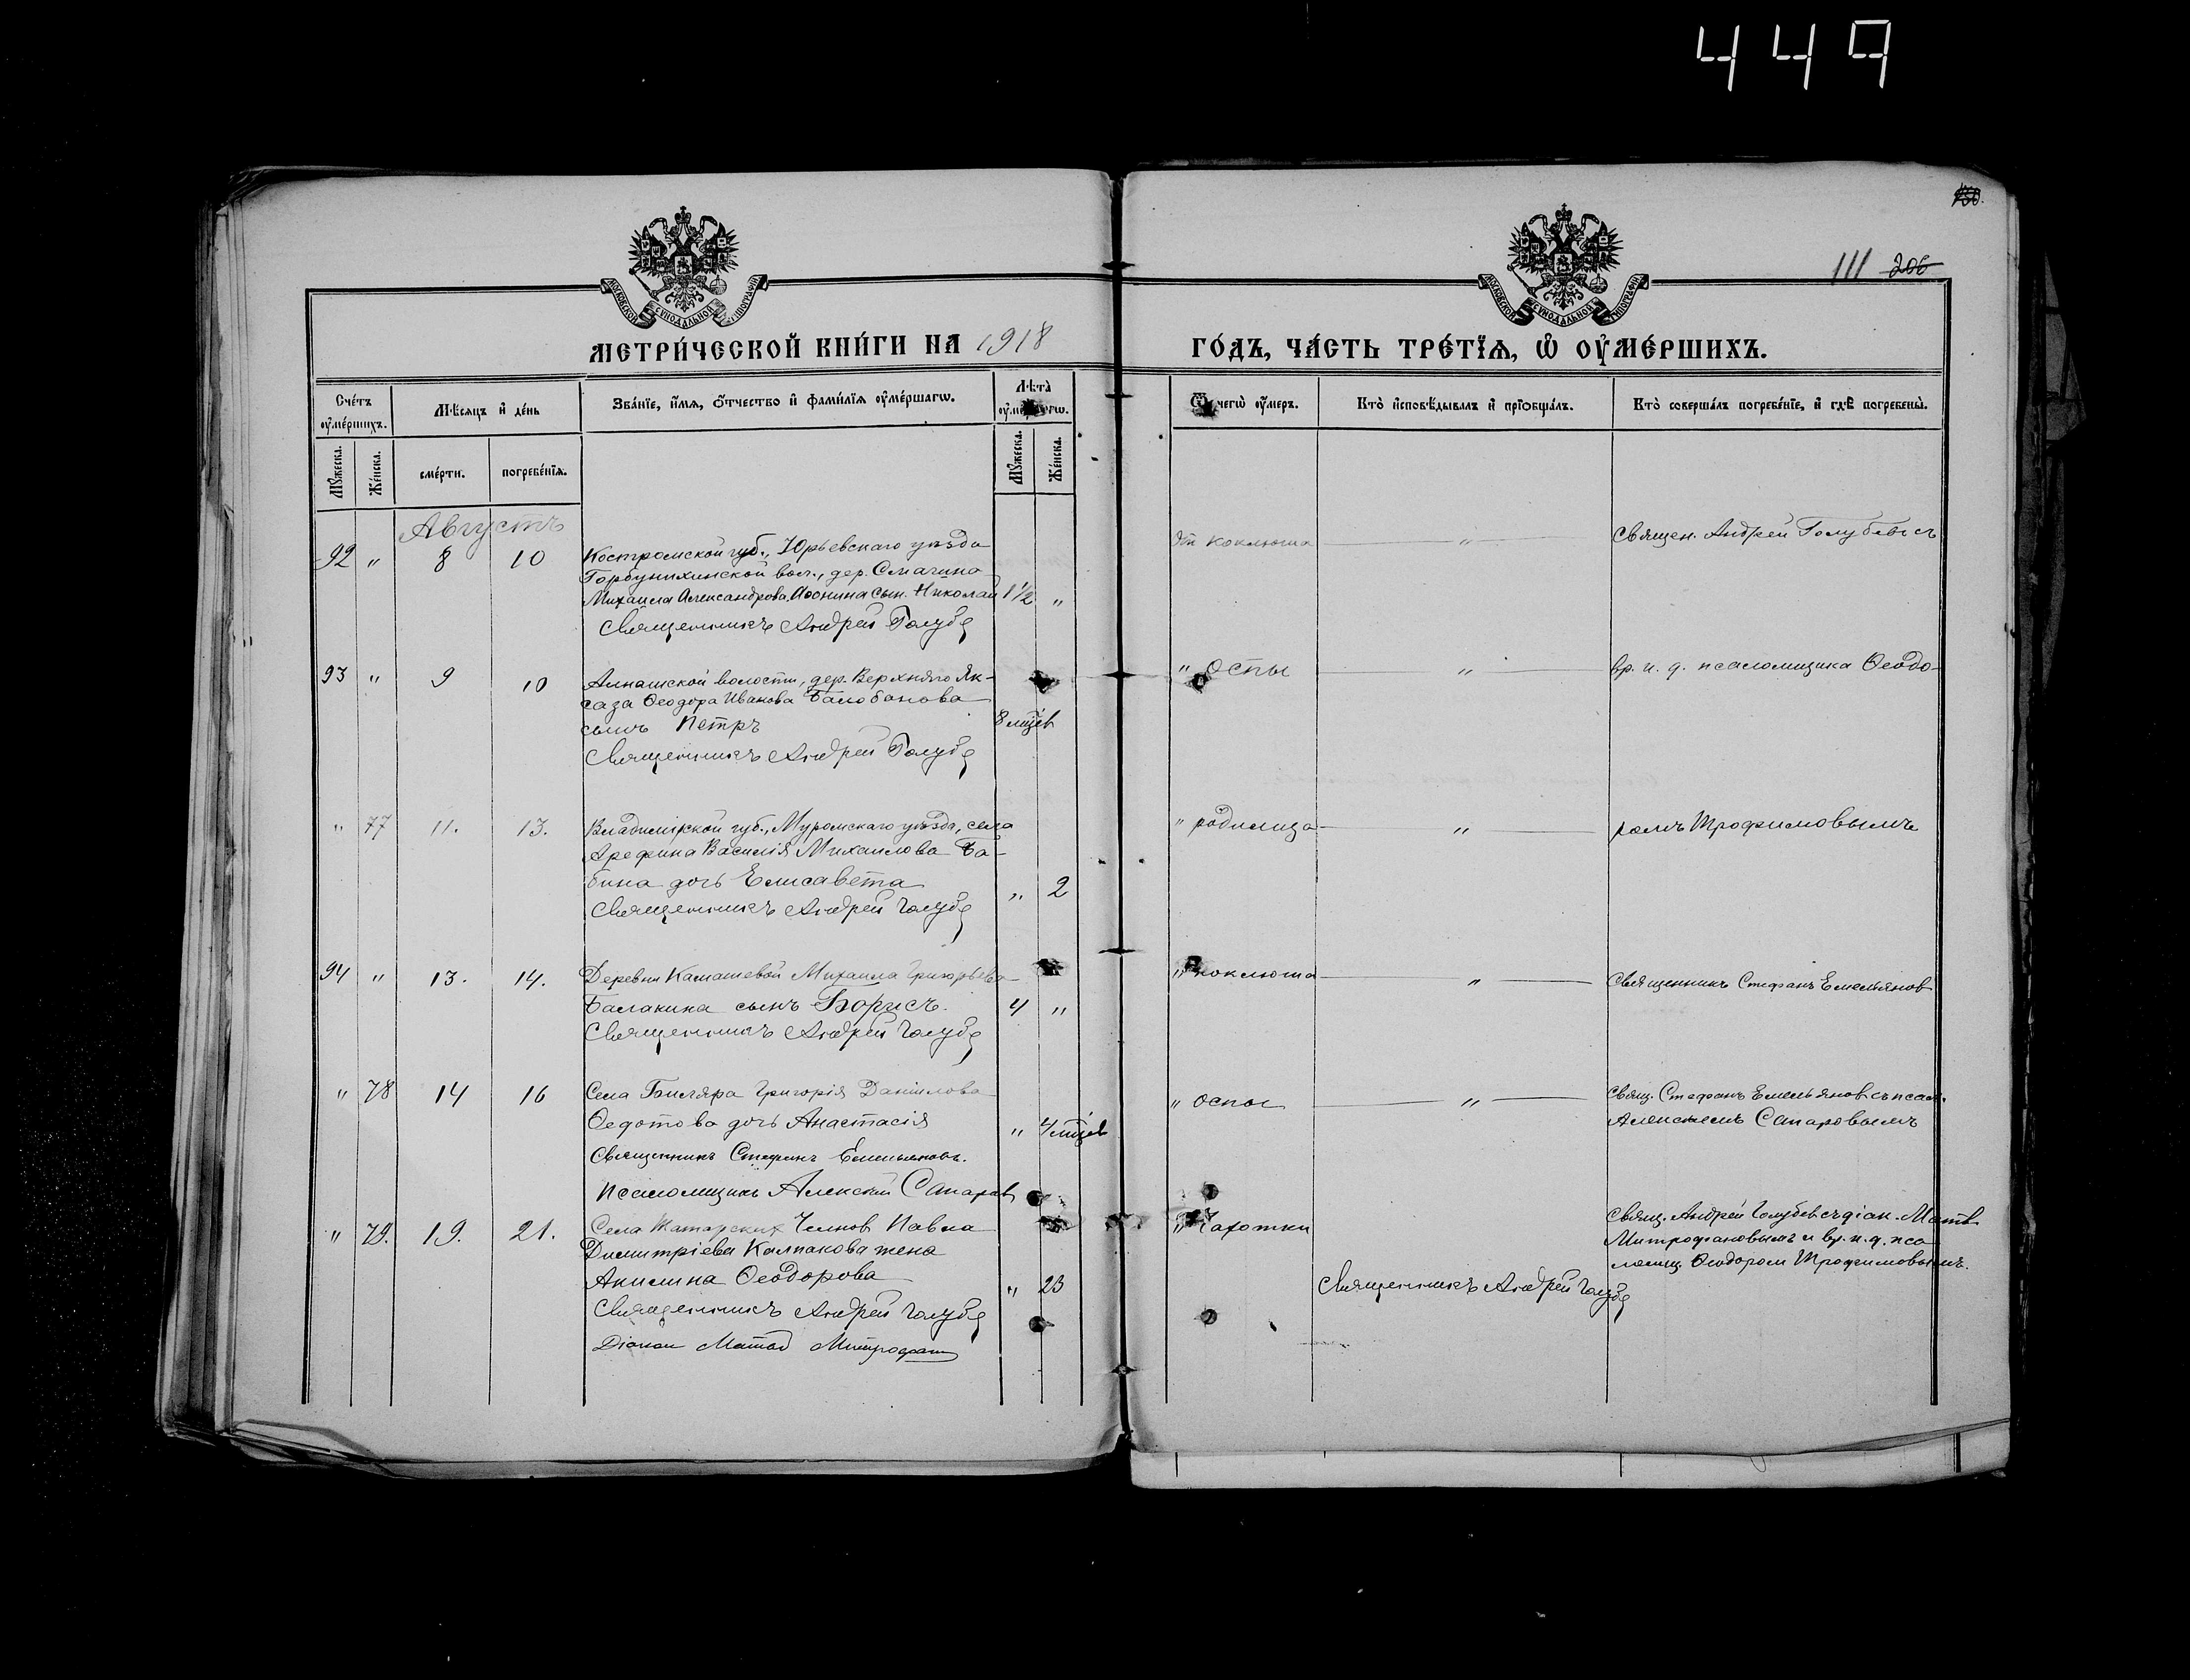 449
150.
111 206
МОСКОВСКОЙ СѴНОДАЛЬНОЙ ТИПОГРАФІИ
МОСКОВСКОЙ СѴНОДАЛЬНОЙ ТИПОГРАФІИ
МЕТРИ́ЧЕСКОЙ КНИ́ГИ НА 1918 ГО́ДЪ, ЧА́СТЬ ТРЕ́ТЇѦ, Ѡ҆ ОУ҆МЕ́РШИХЪ.
Сче́тъ оу҆ме́ршихъ.
Мѣ́сѧцъ и҆ де́нь
Зва́нїе, и҆́мѧ, ѻ҆́тчество и҆ фами́лїѧ оу҆ме́ршагѡ.
Лѣ́та оу҆ме́ршагѡ.
Ѿ чегѡ̀ оу҆́меръ.
Кто̀ и҆сповѣ́дывалъ и҆ прїѻбща́лъ.
Кто̀ соверша́лъ погребе́нїе, и҆ гдѣ̀ погребены̀.
Мꙋ́жеска.
Же́нска.
сме́рти.
погребе́нїѧ.
Мꙋ́жеска.
Же́нска.
Августъ
92 " 8 10 Костромской губ., Юрьевскаго уѣзда
Горбунихинской вол., дер. Смагина
Михаила Александрова Аѳонина сын. Николай 1½ "
Священникъ Андрей Голубе
От коклюша " Священ. Андрей Голубевъ съ
93 " 9 10 Алнашской волости, дер. Верхняго Як-
саза Ѳеодора Иванова Балобанова
сынъ Петръ 8 мѣ́в
Священникъ Андрей Голубе
" оспы " вр. и. д. псаломщика Ѳеодо-
" 77 11. 13. Владимірской губ., Муромскаго уѣзда, села
Арефина Василія Михаилова Ба-
бина дочь Елисавета " 2
Священникъ Андрей Голубе
" родимца " ромъ Трофимовымъ
94 " 13. 14. Деревни Камашевой Михаила Григорьева
Балакина сынъ Борисъ. 4 "
Священникъ Андрей Голубе
" коклюша " Священникъ Стефанъ Емельянов
" 78 14 16 Села Григорія Даніилова
Ѳедотова дочь Анастасія " 4 мцев
Священникъ Стефанъ Емельяновъ.
Псаломщикъ Алексій Сапаров
" оспы " Свящ. Стефанъ Емельянов съ псал.
Алексѣемъ Сапаровымъ
" 79. 19. 21. Села Татарских Челнов Павла
Димитріева Калпакова жена
Акилина Ѳеодорова " 23
Священникъ Андрей Голубе
Діакон Матѳ Митрофан
" Чахотки
Священникъ Андрей Голубе
Свящ. Андрей Голубев съ діак. Матв
Митрофановымъ и вр. и. д. пса
ломщ. Ѳеодором Трофимовымъ.